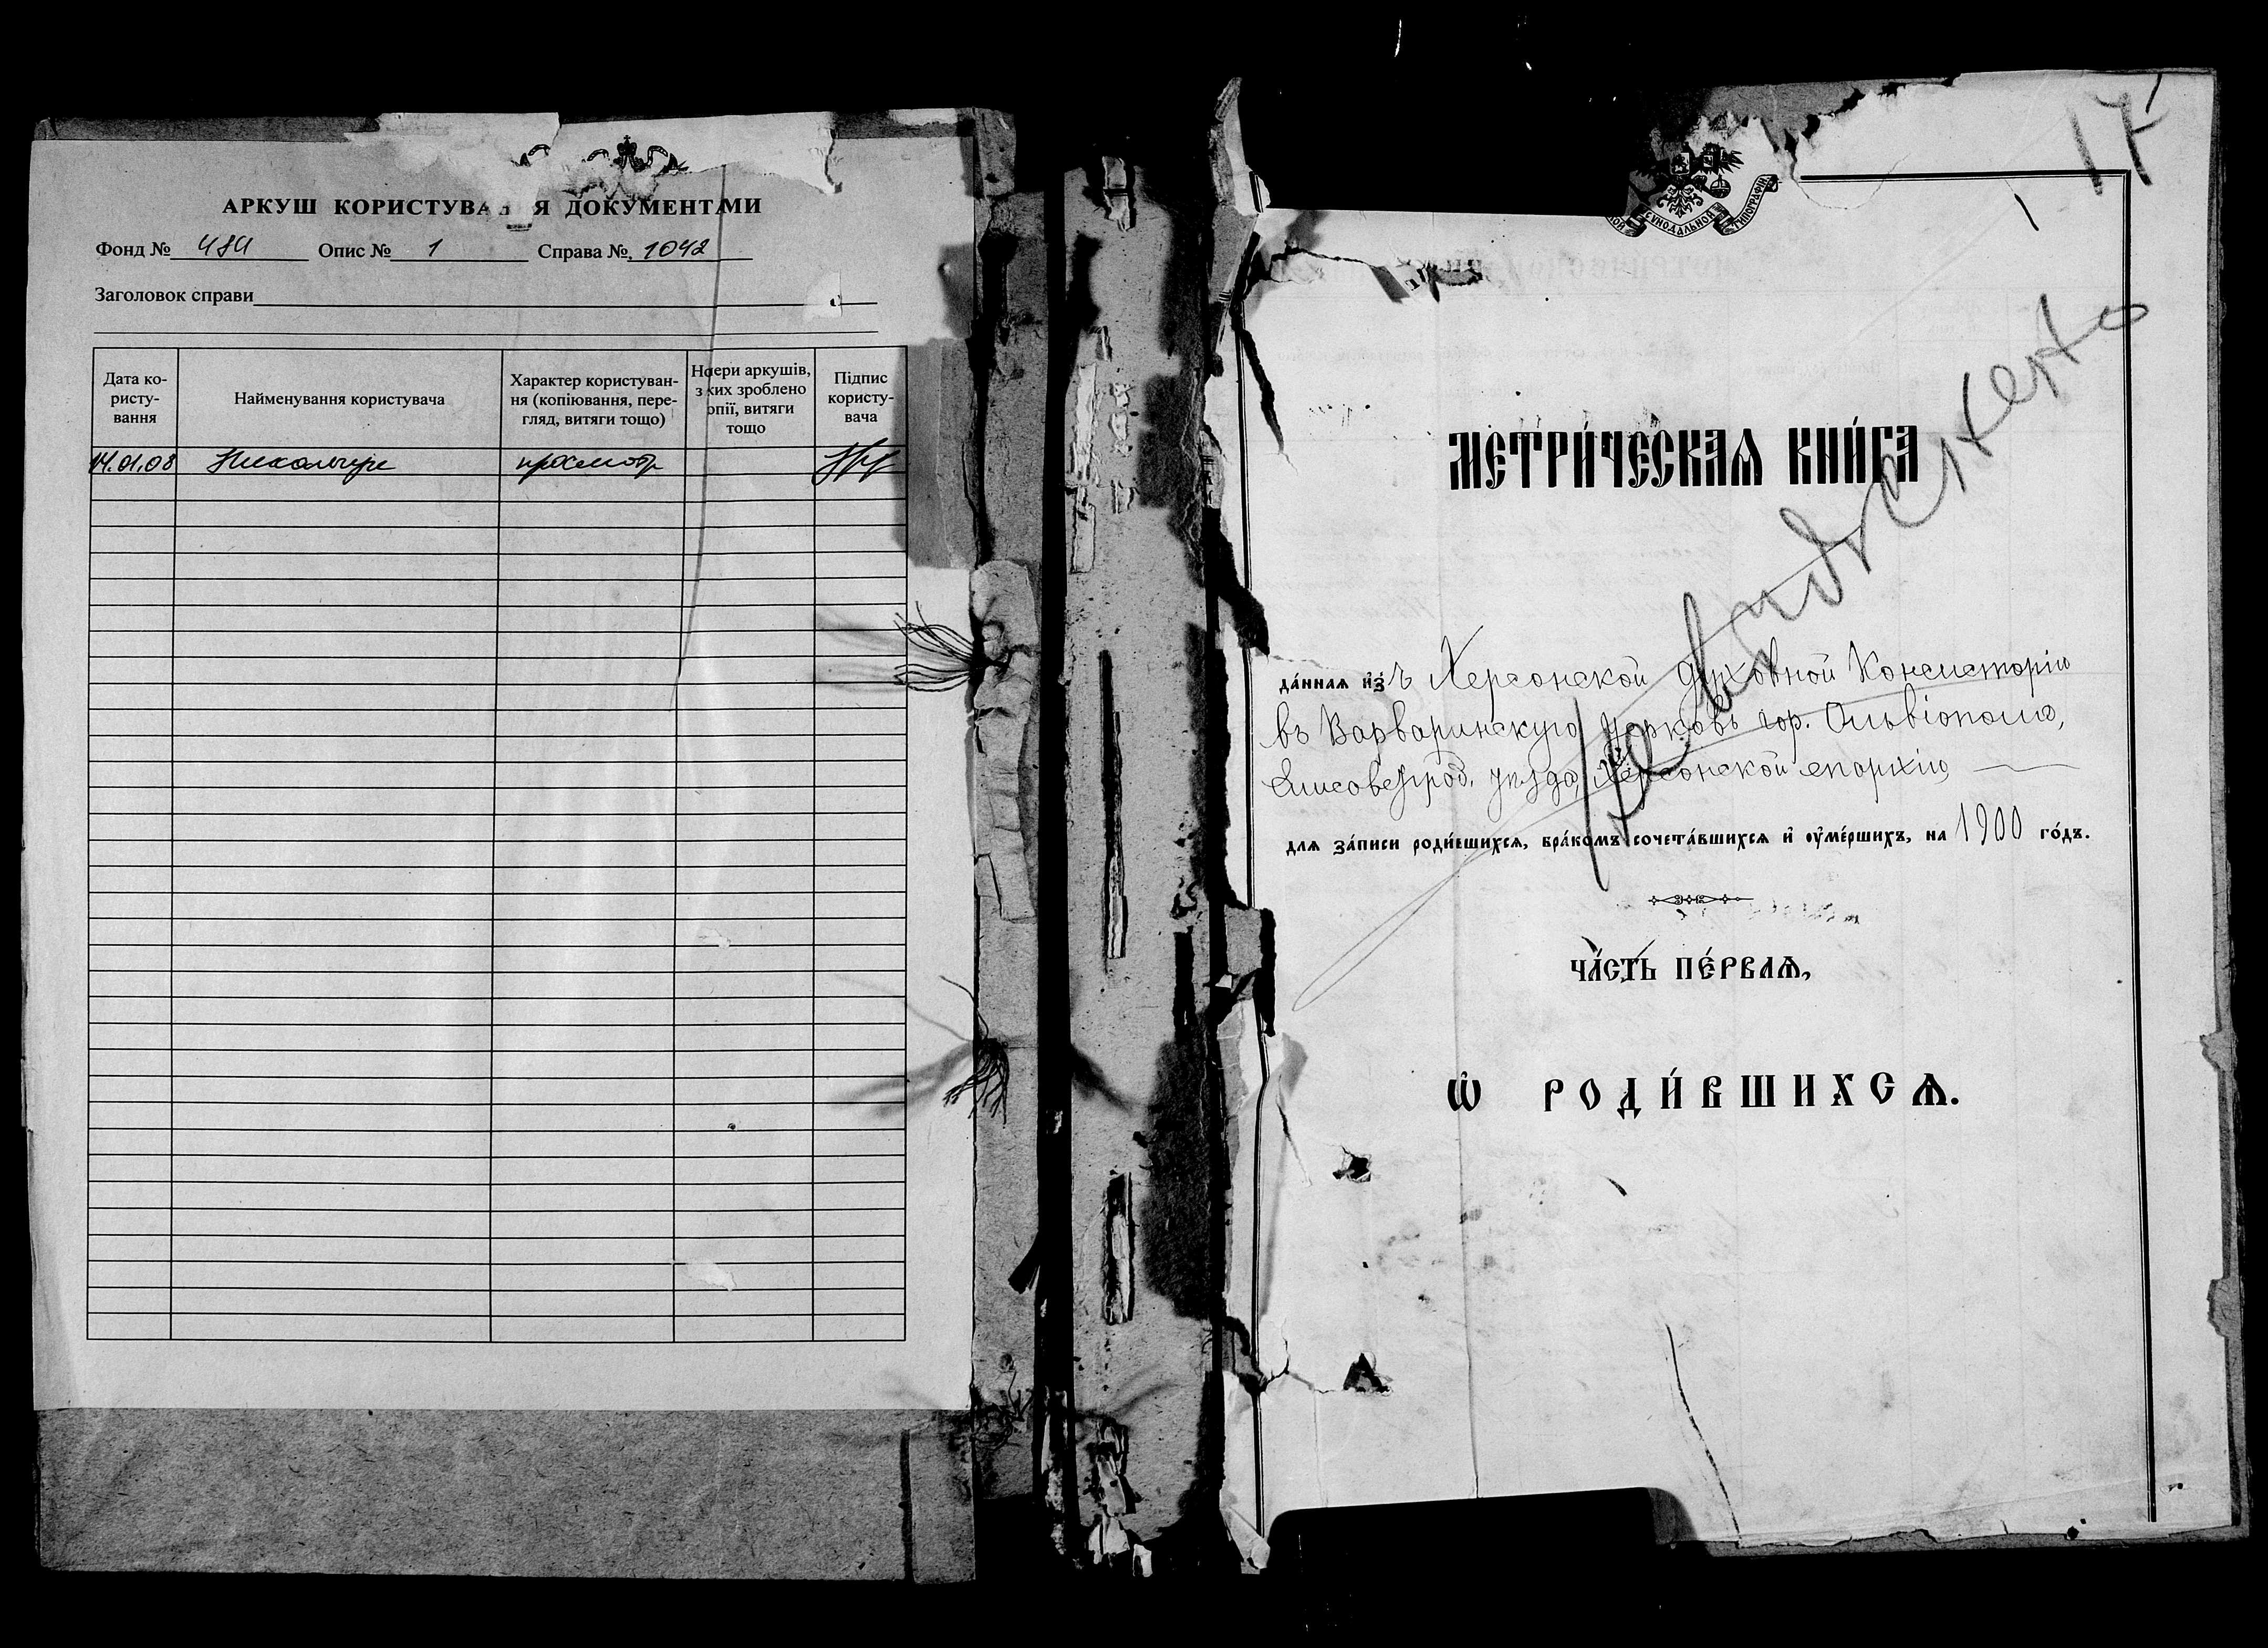 АРКУШ КОРИСТУВА Я ДОКУМЕНТАМИ
Фонд № 484 Опис № 1 Справа № 1042
Заголовок справи
Дата ко-
ристу-
вання
Найменування користувача
Характер користуван-
ня (копіювання, пере-
гляд, витяги тощо)
Но ери аркушів,
з ких зроблено
опії, витяги
тощо
Підпис
користу-
вача
14.01.08 просмотр
17
СУНОДАЛЬНОЙ ТИПОГРАФІИ
МЕТРИ́ЧЕСКАѦ КНИ́ГА
да́нная и҆зъ Херсонской Духовной Консисторіи
въ Варваринскую церковь гор. Ольвіополя,
Елисаветград. уѣзда, Херсонской епархіи
для за́писи роди́вшихсѧ, бра́комъ сочета́вшихсѧ и҆ ѹ҆ме́ршихъ, на 1900 го́дъ.
ЧА́СТЬ ПЕ́РВАѦ,
Ѡ҆ РОДИ́ВШИХСѦ.